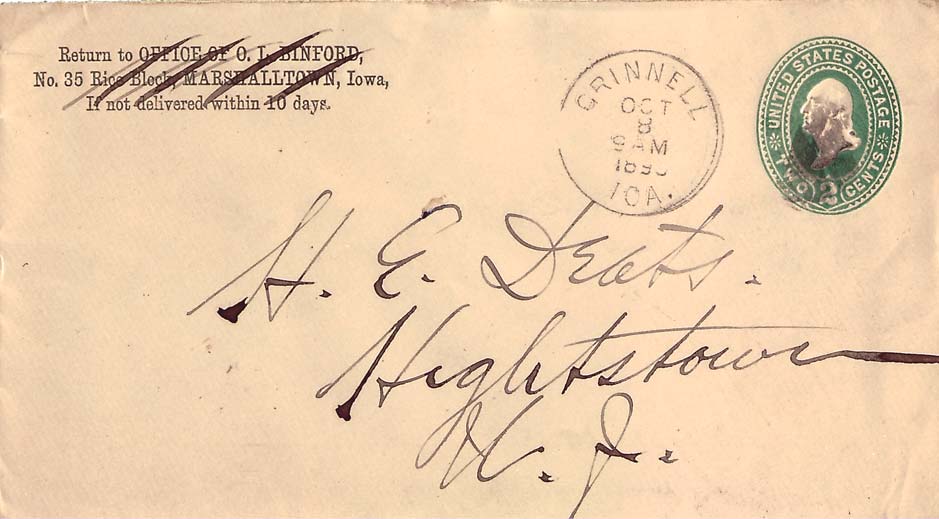 Return to OFFICE OF O. L. BINFORD,
No. 35 Rice Block, MARSHALLTOWN, Iowa,
If not delivered within 10 days.
GRINNELL
OCT
8
9 AM
IOA.
UNITED STATES POSTAGE
TWO 2 CENTS
H. E. Deats.
Hightstown
N. J.